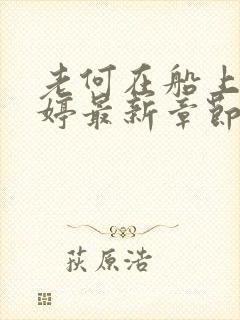 老何在船上
婷最新章节
荻原浩